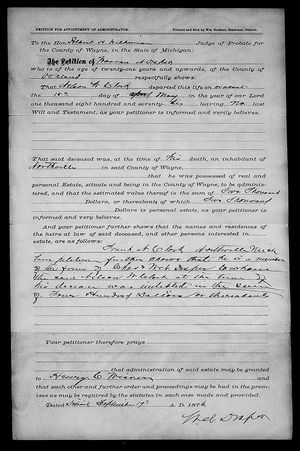 PETITION FOR APPOINTMENT OF ADMINISTRATOR.
To the Hon. Albert H. Wilkinson Judge of Probate for
the County of Wayne, in the State of Michigan:
The Petition of
who is of the age of twenty-one years and upwards, of the County of
Oakland respectfully shows:
That Nelson departed this life on or about
the day of May in the year of our Lord
one thousand eight hundred and seventy six leaving No last
Will and Testament, as your petitioner is informed and verily believes.
That said deceased was, at the time of his death, an inhabitant of
Northville in said County of Wayne,
that he was possessed of real and
Personal Estate, situate and being in the County of Wayne, to be adminis-
tered, and that the estimated value thereof is the sum of Five Thousand
Dollars, or thereabouts of which Five Thousand
Dollars is personal estate, as your petitioner is
informed and verily believes.
And your petitioner further shows that the names and residences
of the heirs at law of said deceased, and other persons interested in
estate, are as follows:
Frank Northville Mich
petitioner further shows that he is a member
of the firm of
the said Nelson at the time of
his decease was indebted in the sum
of Four Hundred Dollars or thereabouts
Your petitioner therefore prays
administration of said estate may be granted
to Henry C.
and that such other and further order and proceedings may be had in the prem-
ises as may be required by the statutes in such case made and provided.
Dated September A. D. 1876